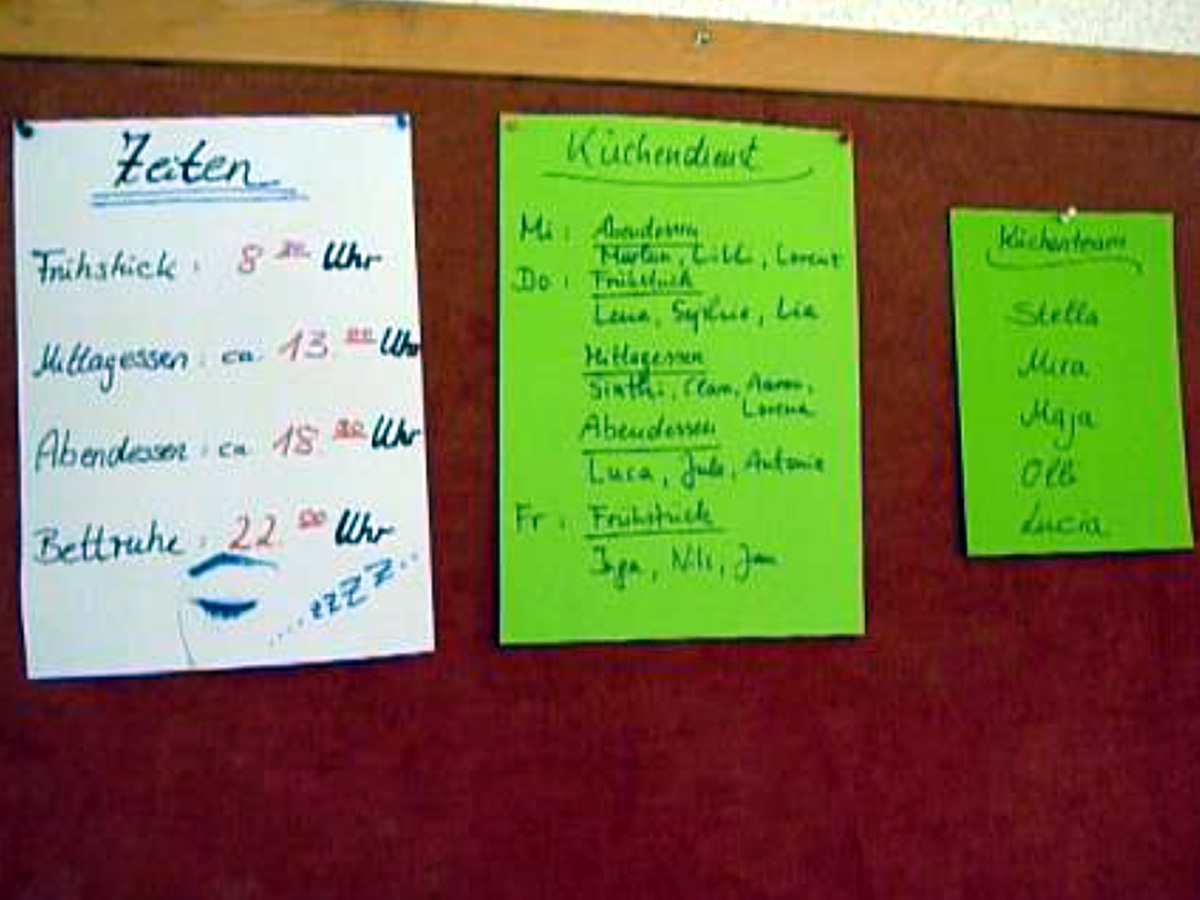 Zeiten
Frühstück : 8 30 Uhr
Mittagessen : ca. 13 00 Uhr
Abendessen : ca 18 30 Uhr
Bettruhe : 22 00 Uhr
...zzZZ..
Küchendienst
Mi : Abendessen
Lorenz
Do : Frühstück
Lena, Sylvie, Lia
Mittagessen
Aaron,
Lorena
Abendessen
Luca, Jule, Antonia
Fr : Frühstück
Inga, Nils, Jan
Küchenteam
Stella
Mira
Maja
Olli
Lucia